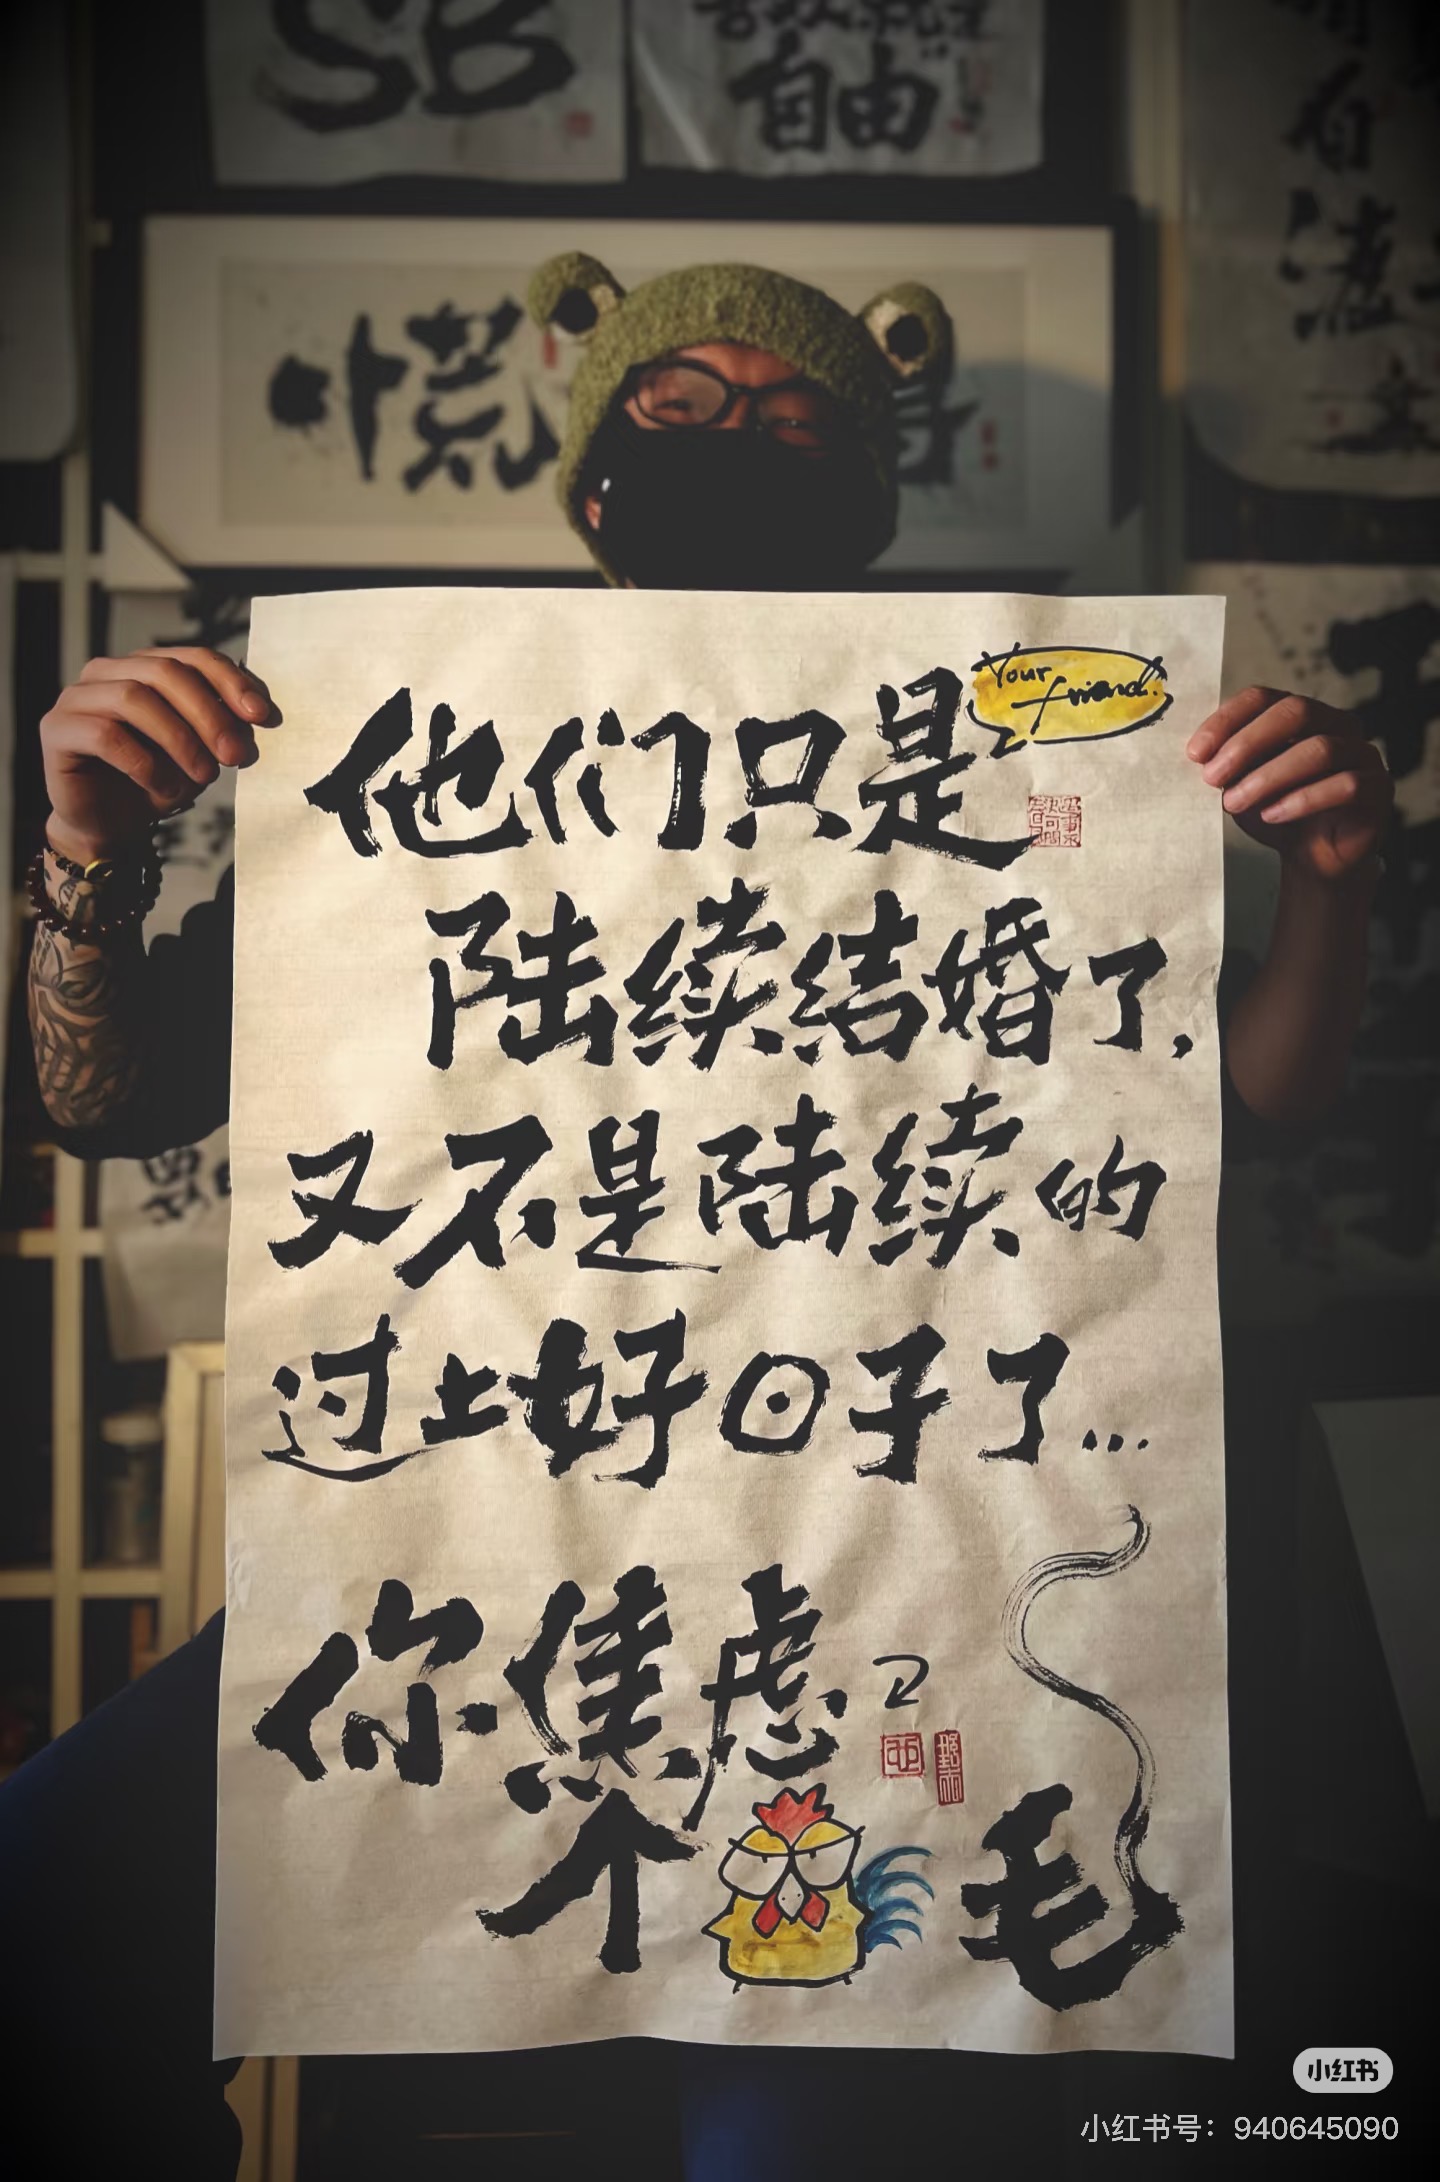 SB
自由
慌
Your
friend.
他们只是
陆续结婚了,
又不是陆续的
过上好日子了...
你焦虑
个
毛
小红书
小红书号：940645090